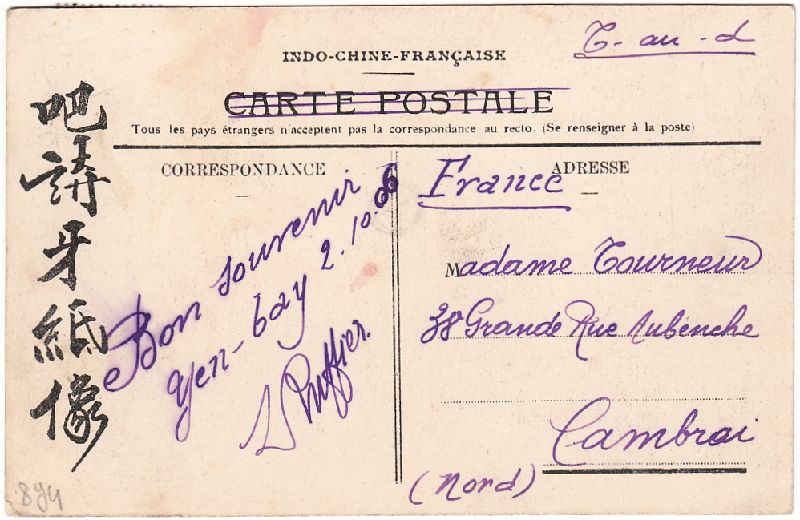 T- au -d
INDO-CHINE-FRANÇAISE
CARTE POSTALE
Tous les pays étrangers n'acceptent pas la correspondance au recto. (Se renseigner à la poste)
吧請牙紙像
CORRESPONDANCE
Bon souvenir
Yen-bay 2.10.06
Ruffier
ADRESSE
France
Madame Tourneur
38 Grande Rue Aubenche
Cambrai
(Nord)